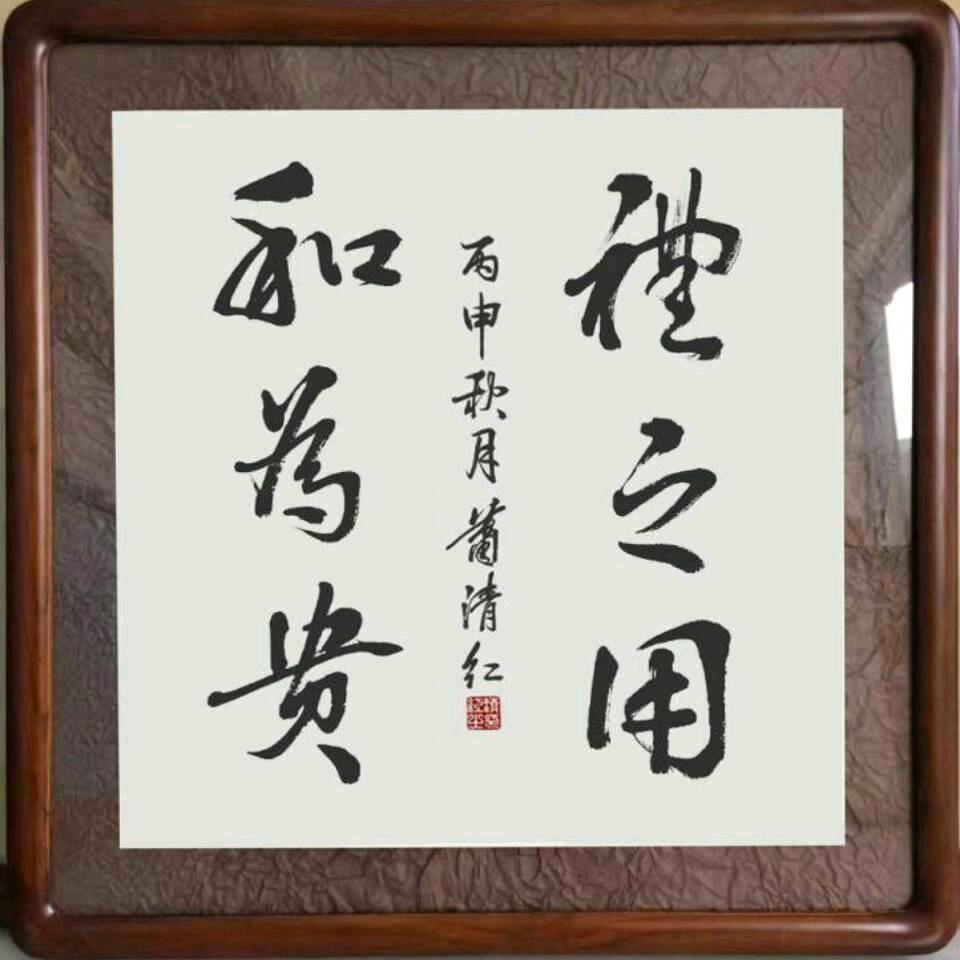 禮之用
和為贵
丙申秋月蕭清红